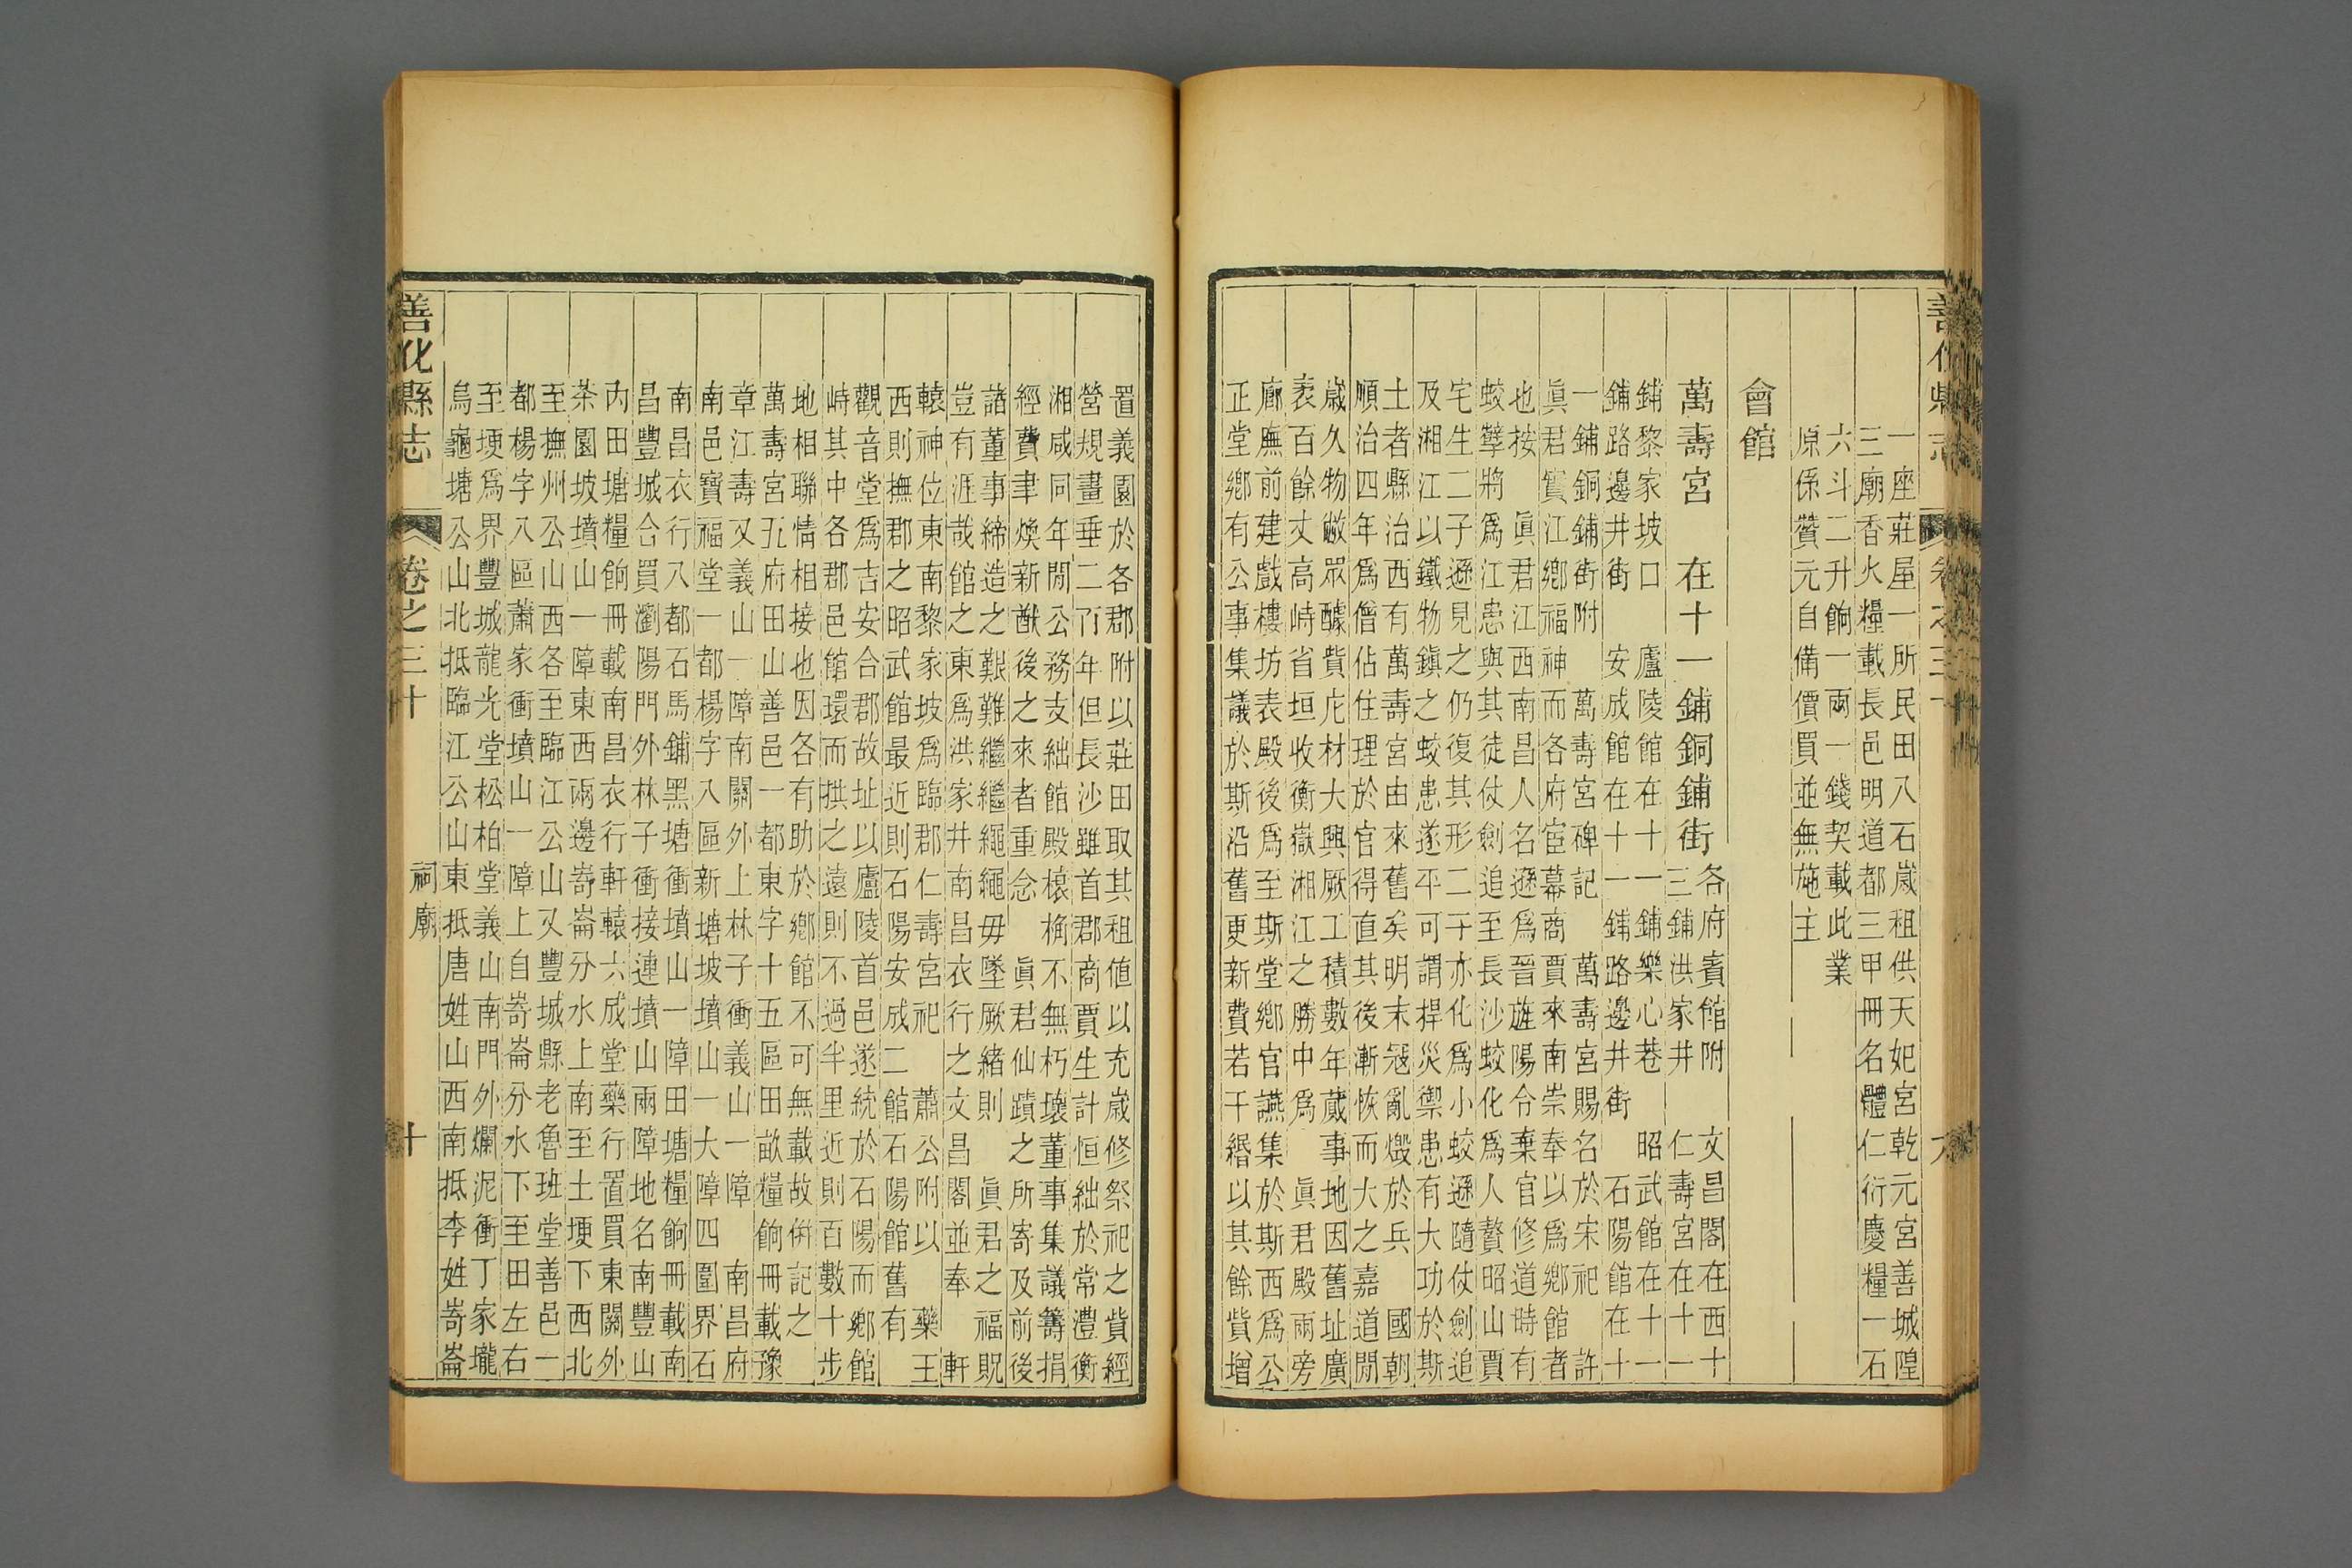 善化縣志
卷之三十
一座莊屋一所民田八石歲租供天妃宮乾元宮善城隍
三廟香火糧載長邑明道都三甲冊名體仁衍慶糧一石
六斗二升餉一兩一錢契載此業
原係贊元自備價買並無施主
會館
萬壽宮 在十一鋪銅鋪街
各府賓館附 文昌閣在西十
三鋪洪家井 仁壽宮在十一
鋪黎家坡口 廬陵館在十一鋪樂心巷 昭武館在十一
鋪路邊井街 安成館在十一鋪路邊井街 石陽館在十
一鋪銅鋪街附 萬壽宮碑記 萬壽宮賜名於宋祀 許
眞君實江鄉福神而各府宦幕商賈來南崇奉以爲鄉館者
也按 眞君江西南昌人名遜爲晉旌陽令棄官修道時有
蛟孽將爲江患與其徒仗劍追至長沙蛟化爲人贅昭山賈
宅生二子遜見之仍復其形二子亦化爲小蛟遜隨仗劍追
及湘江以鐵物鎮之蛟患遂平可謂捍災禦患有大功於斯
土者縣治西有萬壽宮由來舊矣明末冦亂燬於兵 國朝
順治四年爲僧佔住理於官得直其後漸恢而大之嘉道間
歲久物敝眾醵貲庀材大興厥工積數年蕆事地因舊址廣
袤百餘丈高峙省垣收衡嶽湘江之勝中爲 眞君殿兩旁
廊廡前建戲樓坊表殿後爲至斯堂鄉官讌集於斯西爲公
正堂鄉有公事集議於斯沿舊更新費若干緡以其餘貲增
置義園於各郡附以莊田取其租値以充歲修祭祀之貲經
營規畫垂二百年但長沙雖首郡商賈生計恒絀於常澧衡
湘咸同年閒公務支絀館殿榱桷不無朽壞董事集議籌捐
經費聿煥新猷後之來者重念 眞君仙蹟之所寄及前後
諸董事締造之艱難繼繼繩繩毋墜厥緒則 眞君之福貺
豈有涯哉館之東爲洪家井南昌衣行之文昌閣並奉 軒
轅神位東南黎家坡爲臨郡仁壽宮祀 蕭公附以 藥王
西則撫郡之昭武館最近則石陽安成二館石陽館舊有
觀音堂爲吉安合郡故址以廬陵首邑遂統於石陽而鄉館
峙其中各郡邑館環而拱之遠則不過半里近則百數十步
地相聯情相接也因各有助於鄉館不可無載故併記之
萬壽宮五府田山善邑一都東字十五區田畝糧餉冊載豫
章江壽又義山一障南關外上林子衝義山一障 南昌府
南邑寶福堂一都楊字八區新塘坡墳山一大障四圍界石
南昌衣行八都石馬鋪黑塘衝墳山一障田塘糧餉冊載南
昌豐城合買瀏陽門外林子衝接連墳山兩障地名南豐山
內田塘糧餉冊載南昌衣行軒轅六成堂藥行置買東關外
茶園坡墳山一障東西兩邊嵜崙分水上南至土埂下西北
至撫州公山西各至臨江公山又豐城縣老魯班堂善邑一
都楊字八區蕭家衝墳山一障上自嵜崙分水下至田左右
至埂爲界豐城龍光堂松柏堂義山南門外爛泥衝丁家壠
烏龜塘公山北抵臨江公山東抵唐姓山西南抵李姓嵜崙
善化縣志
卷之三十
祠廟
十